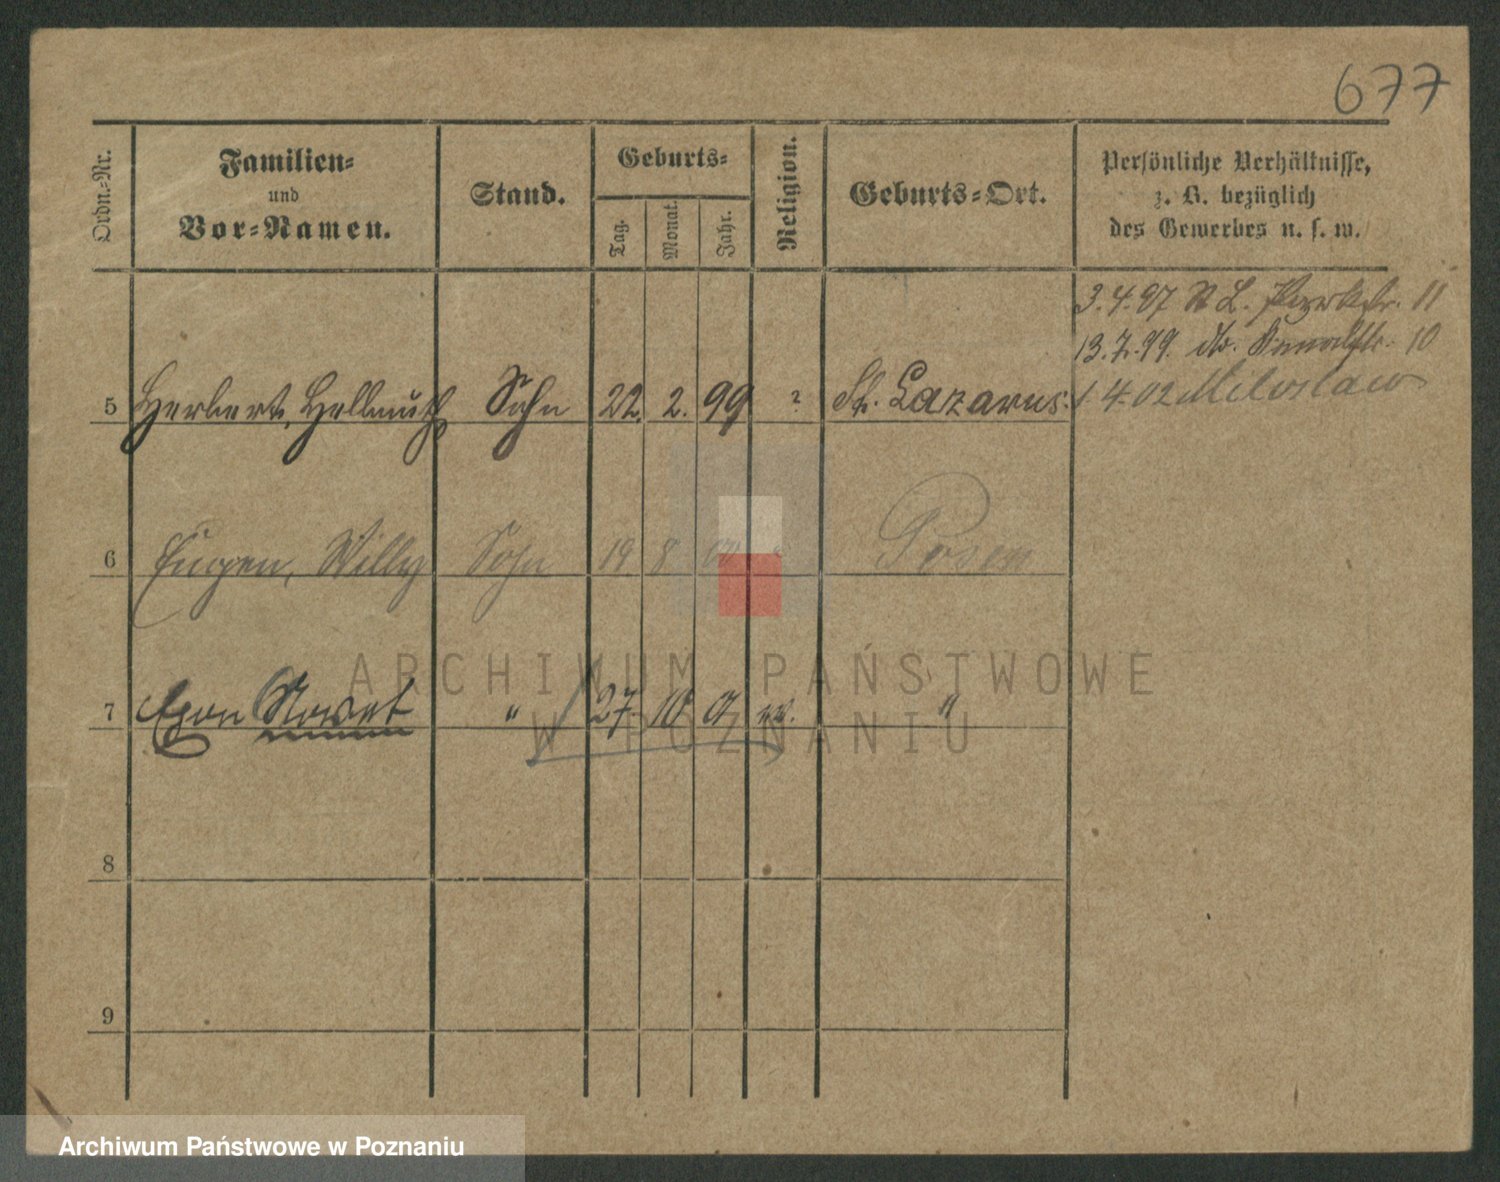 677
Ordn.-Nr.
Familien-
und
Vor-Namen.
Stand.
Geburts-
Tag.
Monat.
Jahr.
Religion.
Geburts-Ort.
Persönliche Verhältnisse,
z. B. bezüglich
des Gewerbes u. s. w.
3.4.97 St L. Parkstr. 11
13.7.99. do. Kanalstr. 10
1 4.02 Miloslaw
5 Herbert, Hellmuth Sohn 22. 2. 99 St. Lazarus.
6 Eugen, Willy Sohn 19. 8 Posen
7 Egon " 27. 10 ev. "
8
9
ARCHIWUM PAŃSTWOWE
W POZNANIU
Archiwum Państwowe w Poznaniu